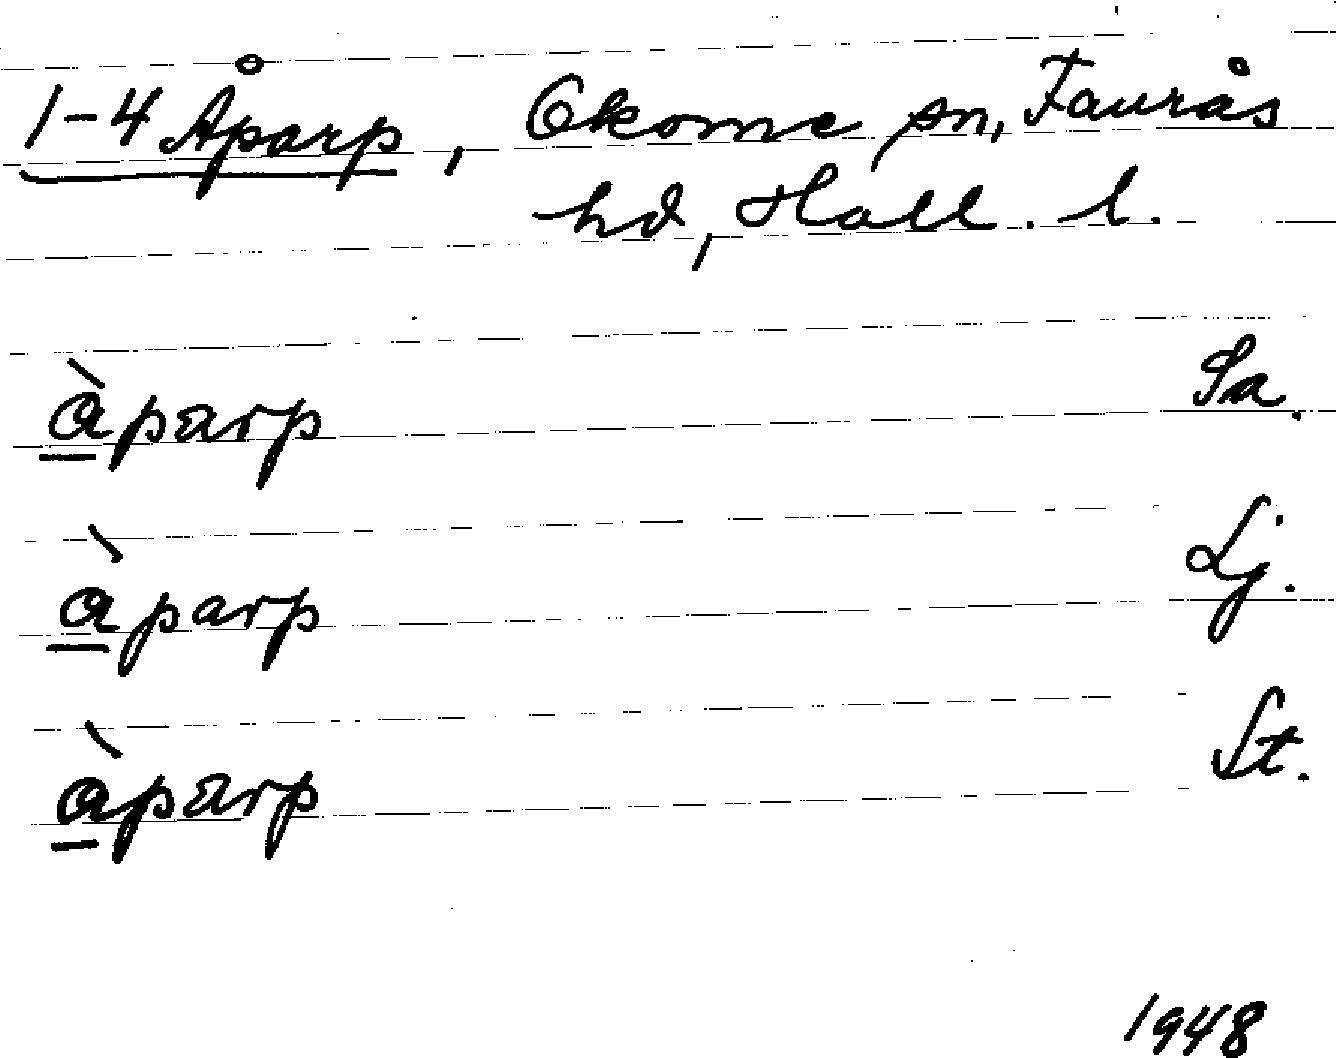 1-4 Åparp, Okome sn, Faurås
hd, Hall. l.
àparp Sa.
àparp Lj.
àparp St.
1948